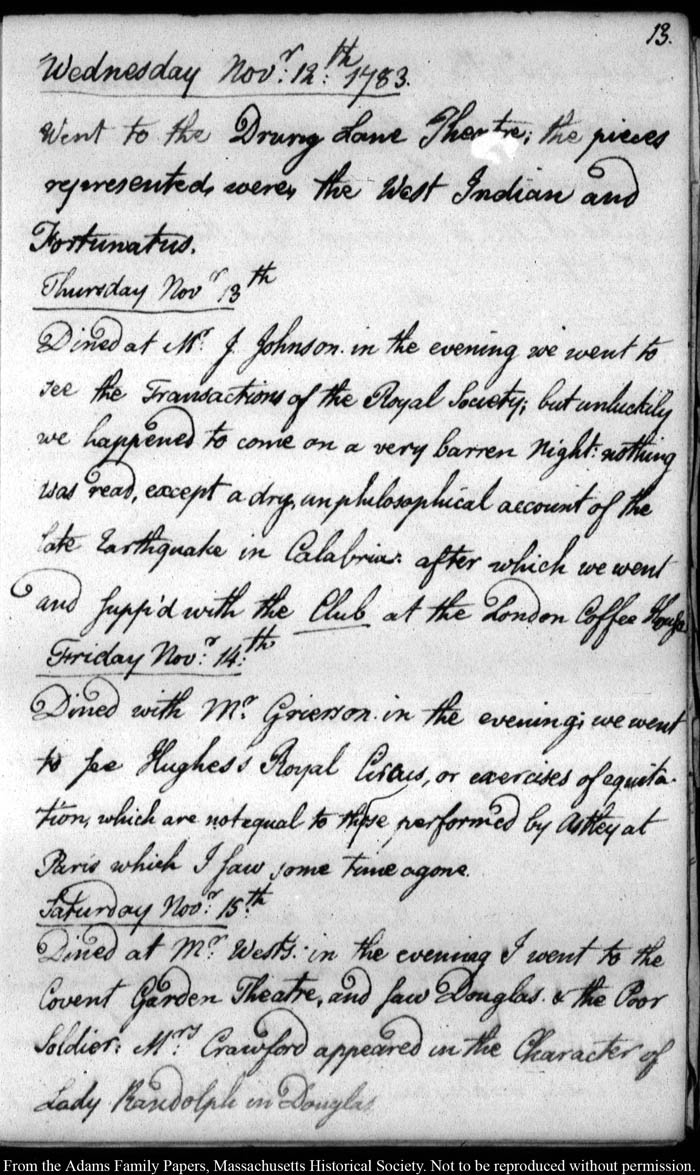 13.
Wednesday Novr. 12th. 1783.
Went to the Drury Lane Theatre; the pieces
represented, were, the West Indian and
Fortunatus.
Thursday Novr 13th
Dined at Mr. J. Johnson. in the evening we went to
see the Transactions of the Royal Society; but unluckily
we happened to come on a very barren Night: nothing
was read, except a dry, unphilosophical account of the
late Earthquake in Calabria: after which we went
and supp'd with the Club at the London Coffee House
Friday Novr. 14th.
Dined with Mr. Grierson. in the evening; we went
to see Hughes's Royal Circus, or exercises of equita-
tion, which are not equal to those performed by Astley at
Paris which I saw some time agone.
Saturday Novr. 15th.
Dined at Mr. West's. in the evening I went to the
Covent Garden Theatre, and saw Douglas. & the Poor
Soldier: Mrs. Crawford appeared in the Character of
Lady Randolph in Douglas
From the Adams Family Papers, Massachusetts Historical Society. Not to be reproduced without permission.